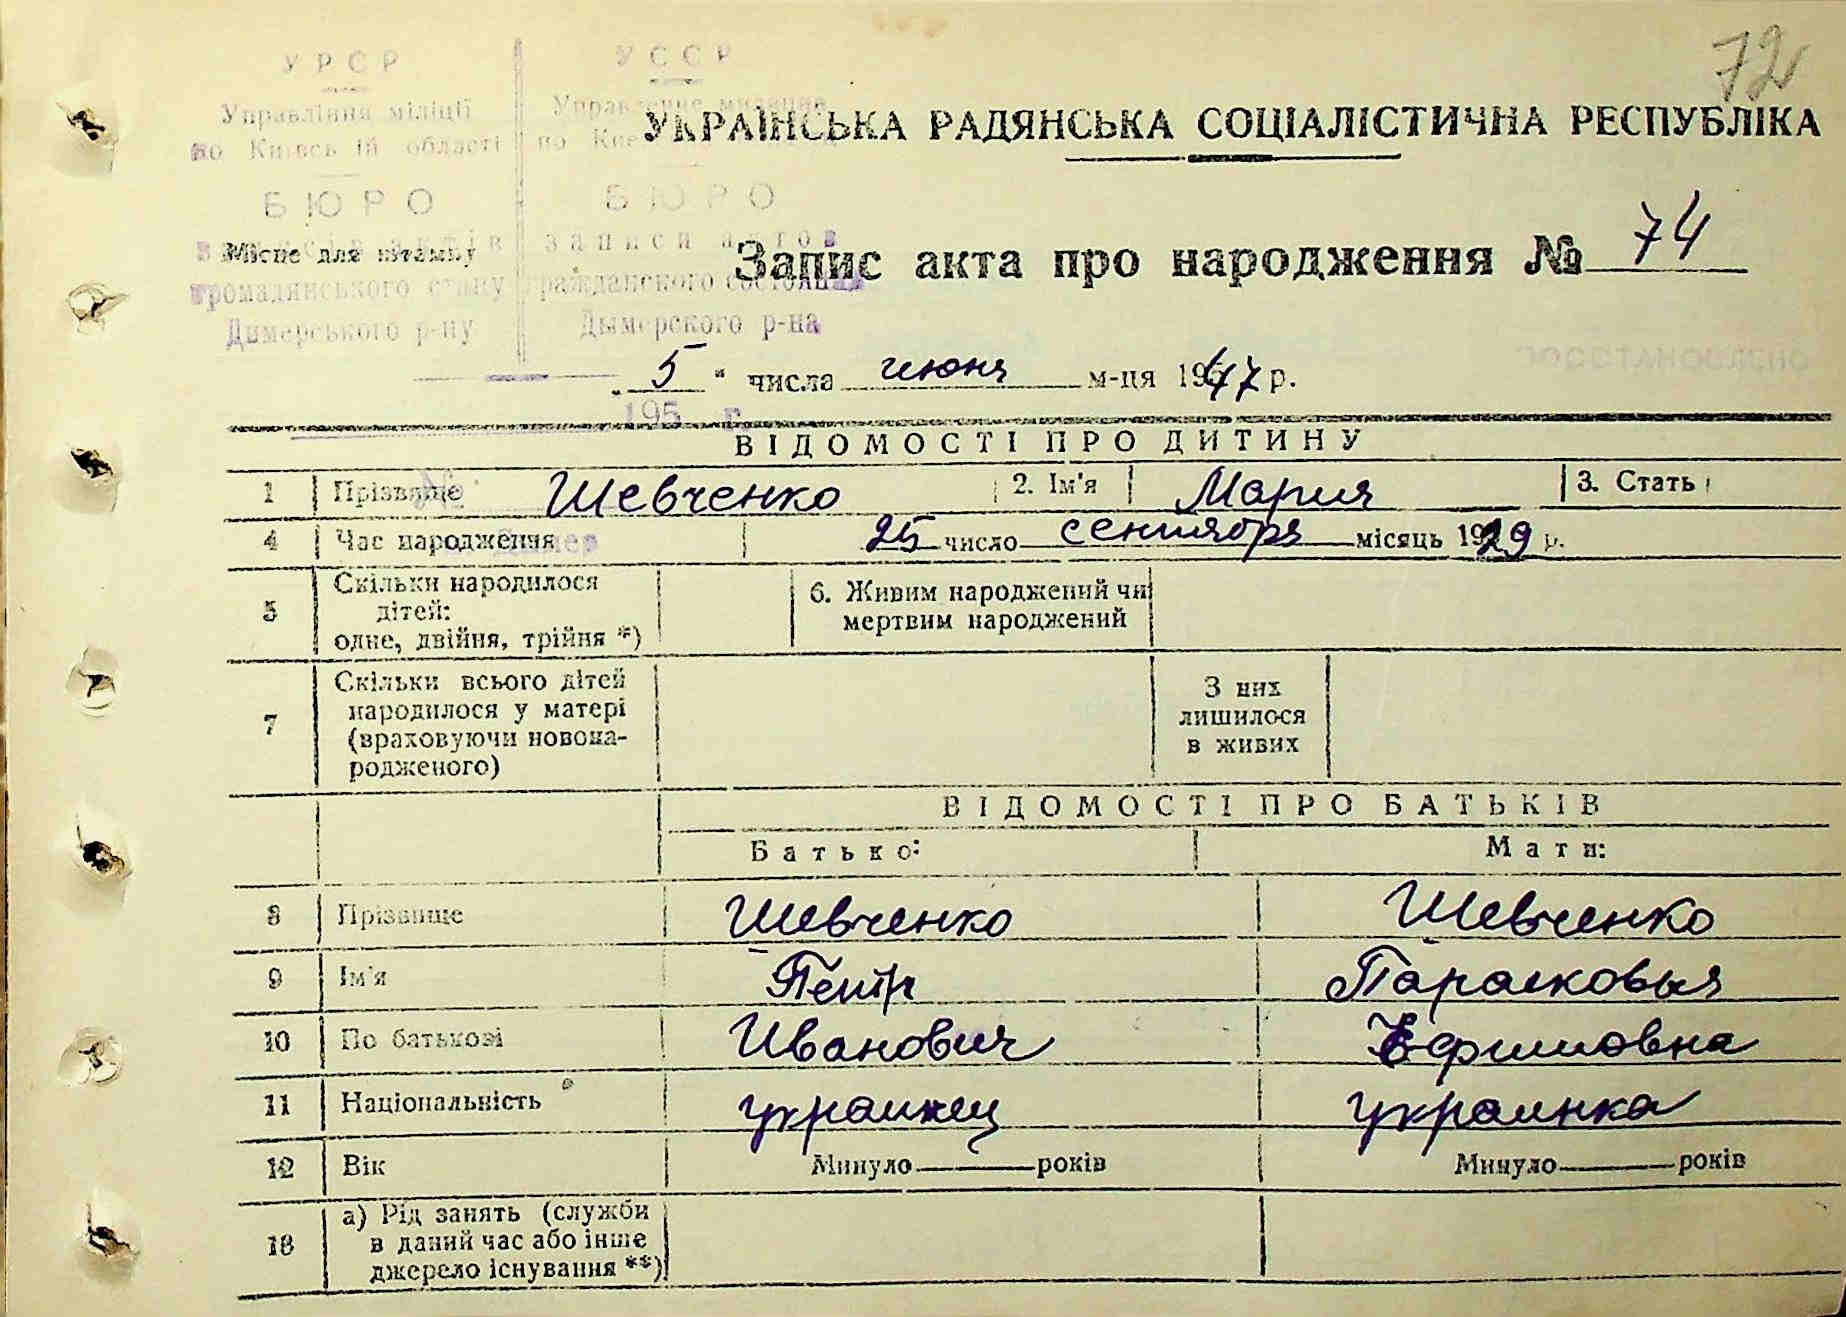 72
УРСР УССР
Управління міліції Управление милиции
по Київській області по Кие
УКРАЇНСЬКА РАДЯНСЬКА СОЦІАЛІСТИЧНА РЕСПУБЛІКА
БЮРО БЮРО
записів актів записи актов
Місце для штампу
Запис акта про народження № 74
громадянського стану гражданского состояния
Димерського р-ну Дымерского р-на
"5" числа июня м-ця 1947 р.
195 г.
ВІДОМОСТІ ПРО ДИТИНУ
1 Прізвище Шевченко 2. Ім'я Мария 3. Стать
№
4 Час народження 25 число сентября місяць 1929 р.
5 Скільки народилося дітей: одне, двійня, трійня *) 6. Живим народжений чи мертвим народжений
7 Скільки всього дітей народилося у матері (враховуючи новона-родженого) З них лишилося в живих
ВІДОМОСТІ ПРО БАТЬКІВ
Батько: Мати:
8 Прізвище Шевченко Шевченко
9 Ім'я Петр Парасковья
10 По батькові Иванович Ефимовна
11 Національність украинец украинка
12 Вік Минуло років Минуло років
13 а) Рід занять (служби в даний час або інше джерело існування **)